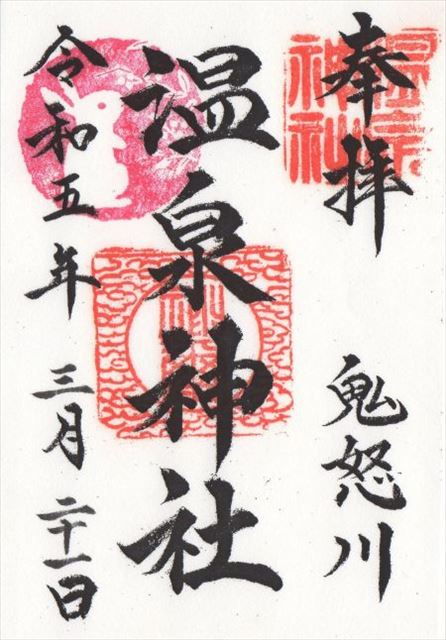 奉拝
鬼怒川
温泉神社
令和五年三月二十一日
温泉
神社